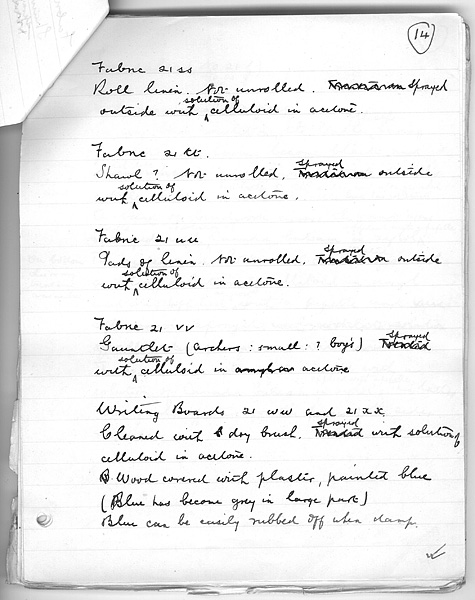 14
Fabric 21 ss
Roll linen. Not unrolled. sprayed
outside with solution of celluloid in acetone.
Fabric 21 tt.
Shawl? Not unrolled, sprayed outside
with solution of celluloid in acetone.
Fabric 21 uu
Pads of linen. Not unrolled, sprayed outside
with solution of celluloid in acetone.
Fabric 21 vv
Gauntlet (archers : small : ? boy's) sprayed
with solution of celluloid in acetone
Writing Boards 21 ww and 21 xx
Cleaned with dry brush. sprayed with solution of
celluloid in acetone.
Wood covered with plaster, painted blue
(Blue has become grey in large part)
Blue can be easily rubbed off when damp.